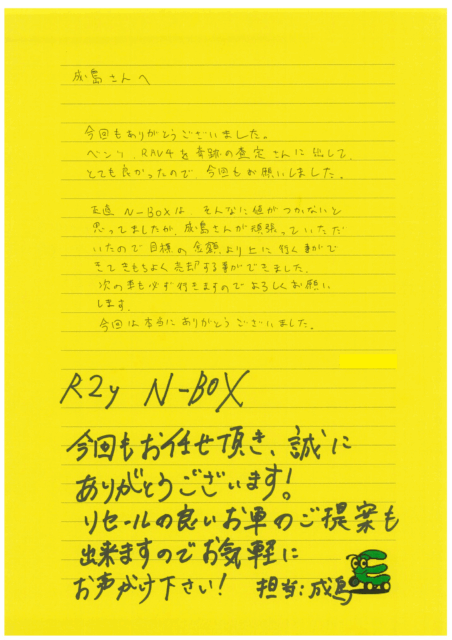 成島さんへ
今回もありがとうございました。
ベンツ、RAV4を奇跡の査定さんに出して、
とても良かったので、今回もお願いしました。
正直 N-BOXは、そんなに値がつかないと
思ってましたが、成島さんが頑張っていただ
いたので目標の金額より上に行く事がで
きてきもちよく売却する事ができました。
次の車も必ず行きますのでよろしくお願い
します。
今回は本当にありがとうございました。
R2y N-BOX
今回もお任せ頂き、誠に
ありがとうございます！
リセールの良いお車のご提案も
出来ますのでお気軽に
お声がけ下さい！ 担当：成島